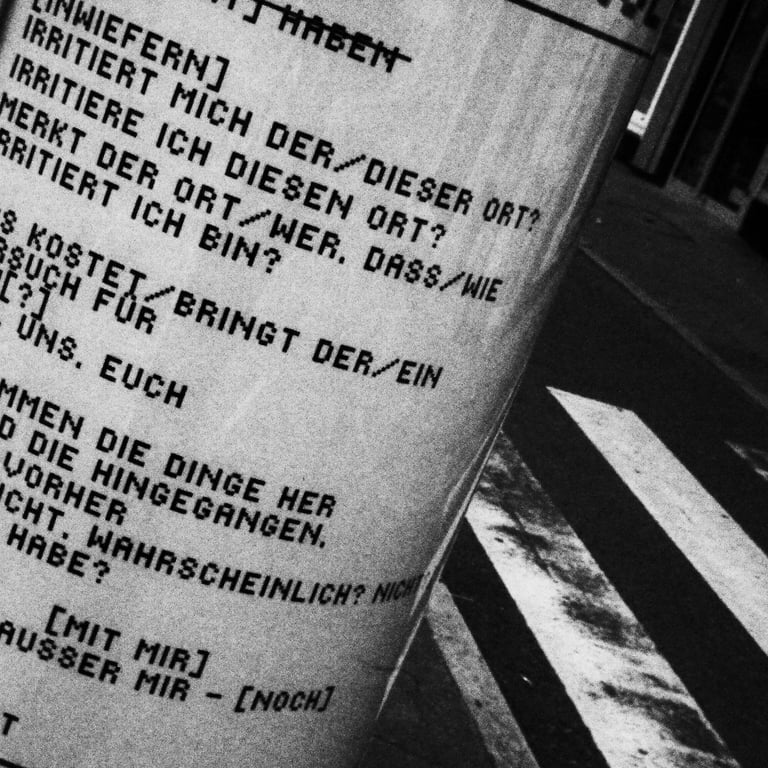 HABEN
[INWIEFERN]
IRRITIERT MICH DER/DIESER ORT?
IRRITIERE ICH DIESEN ORT?
MERKT DER ORT/WER, DASS/WIE
IRRITIERT ICH BIN?
KOSTET/BRINGT DER/EIN
FÜR
[?]
UNS, EUCH
DIE DINGE HER
DIE HINGEGANGEN,
VORHER
WAHRSCHEINLICH? NICHT
HABE?
[MIT MIR]
AUSSER MIR - [NOCH]